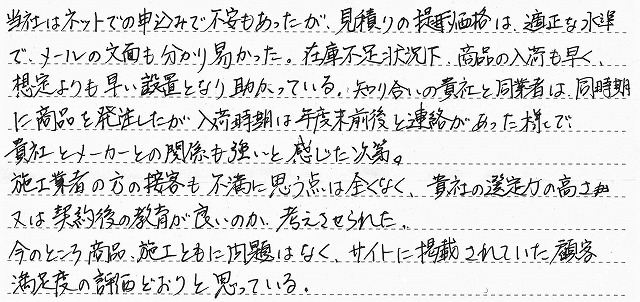 当社はネットでの申込みで不安もあったが、見積りの提示価格は、適正な水準
で、メールの文面も分かり易かった。在庫不足状況下、商品の入荷も早く、
想定よりも早い設置となり助かっている。知り合いの貴社と同業者は、同時期
に商品を発注したが入荷時期は年度末前後と連絡があった様で
貴社とメーカーとの関係も強いと感じた次第。
施工業者の方の接客も不満に思う点は全くなく、貴社の選定力の高さ
又は契約後の教育が良いのか、考えさせられた。
今のところ商品、施工ともに問題はなく、サイトに掲載されていた顧客
満足度の評価どおりと思っている。